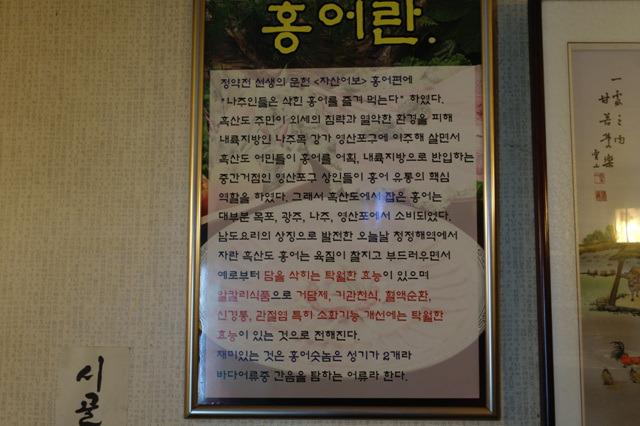 홍어란.
정약전 선생의 문헌 <자산어보> 홍어편에
"나주인들은 삭힌 홍어를 즐겨 먹는다" 하였다.
흑산도 주민이 외세의 침략과 열악한 환경을 피해
내륙지방인 나주목 강가 영산포구에 이주해 살면서
흑산도 어민들이 홍어를 어획, 내륙지방으로 반입하는
중간거점인 영산포구 상인들이 홍어 유통의 핵심
역할을 하였다. 그래서 흑산도에서 잡은 홍어는
대부분 목포, 광주, 나주, 영산포에서 소비되었다.
남도요리의 상징으로 발전한 오늘날 청정해역에서
자란 흑산도 홍어는 육질이 찰지고 부드러우면서
예로부터 담을 삭히는 탁월한 효능이 있으며
알칼리식품으로 거담제, 기관천식, 혈액순환,
신경통, 관절염 특히 소화기능 개선에는 탁월한
효능이 있는 것으로 전해진다.
재미있는 것은 홍어숫놈은 성기가 2개라
바다어류중 간음을 탐하는 어류라 한다.
시골
一雲之雨